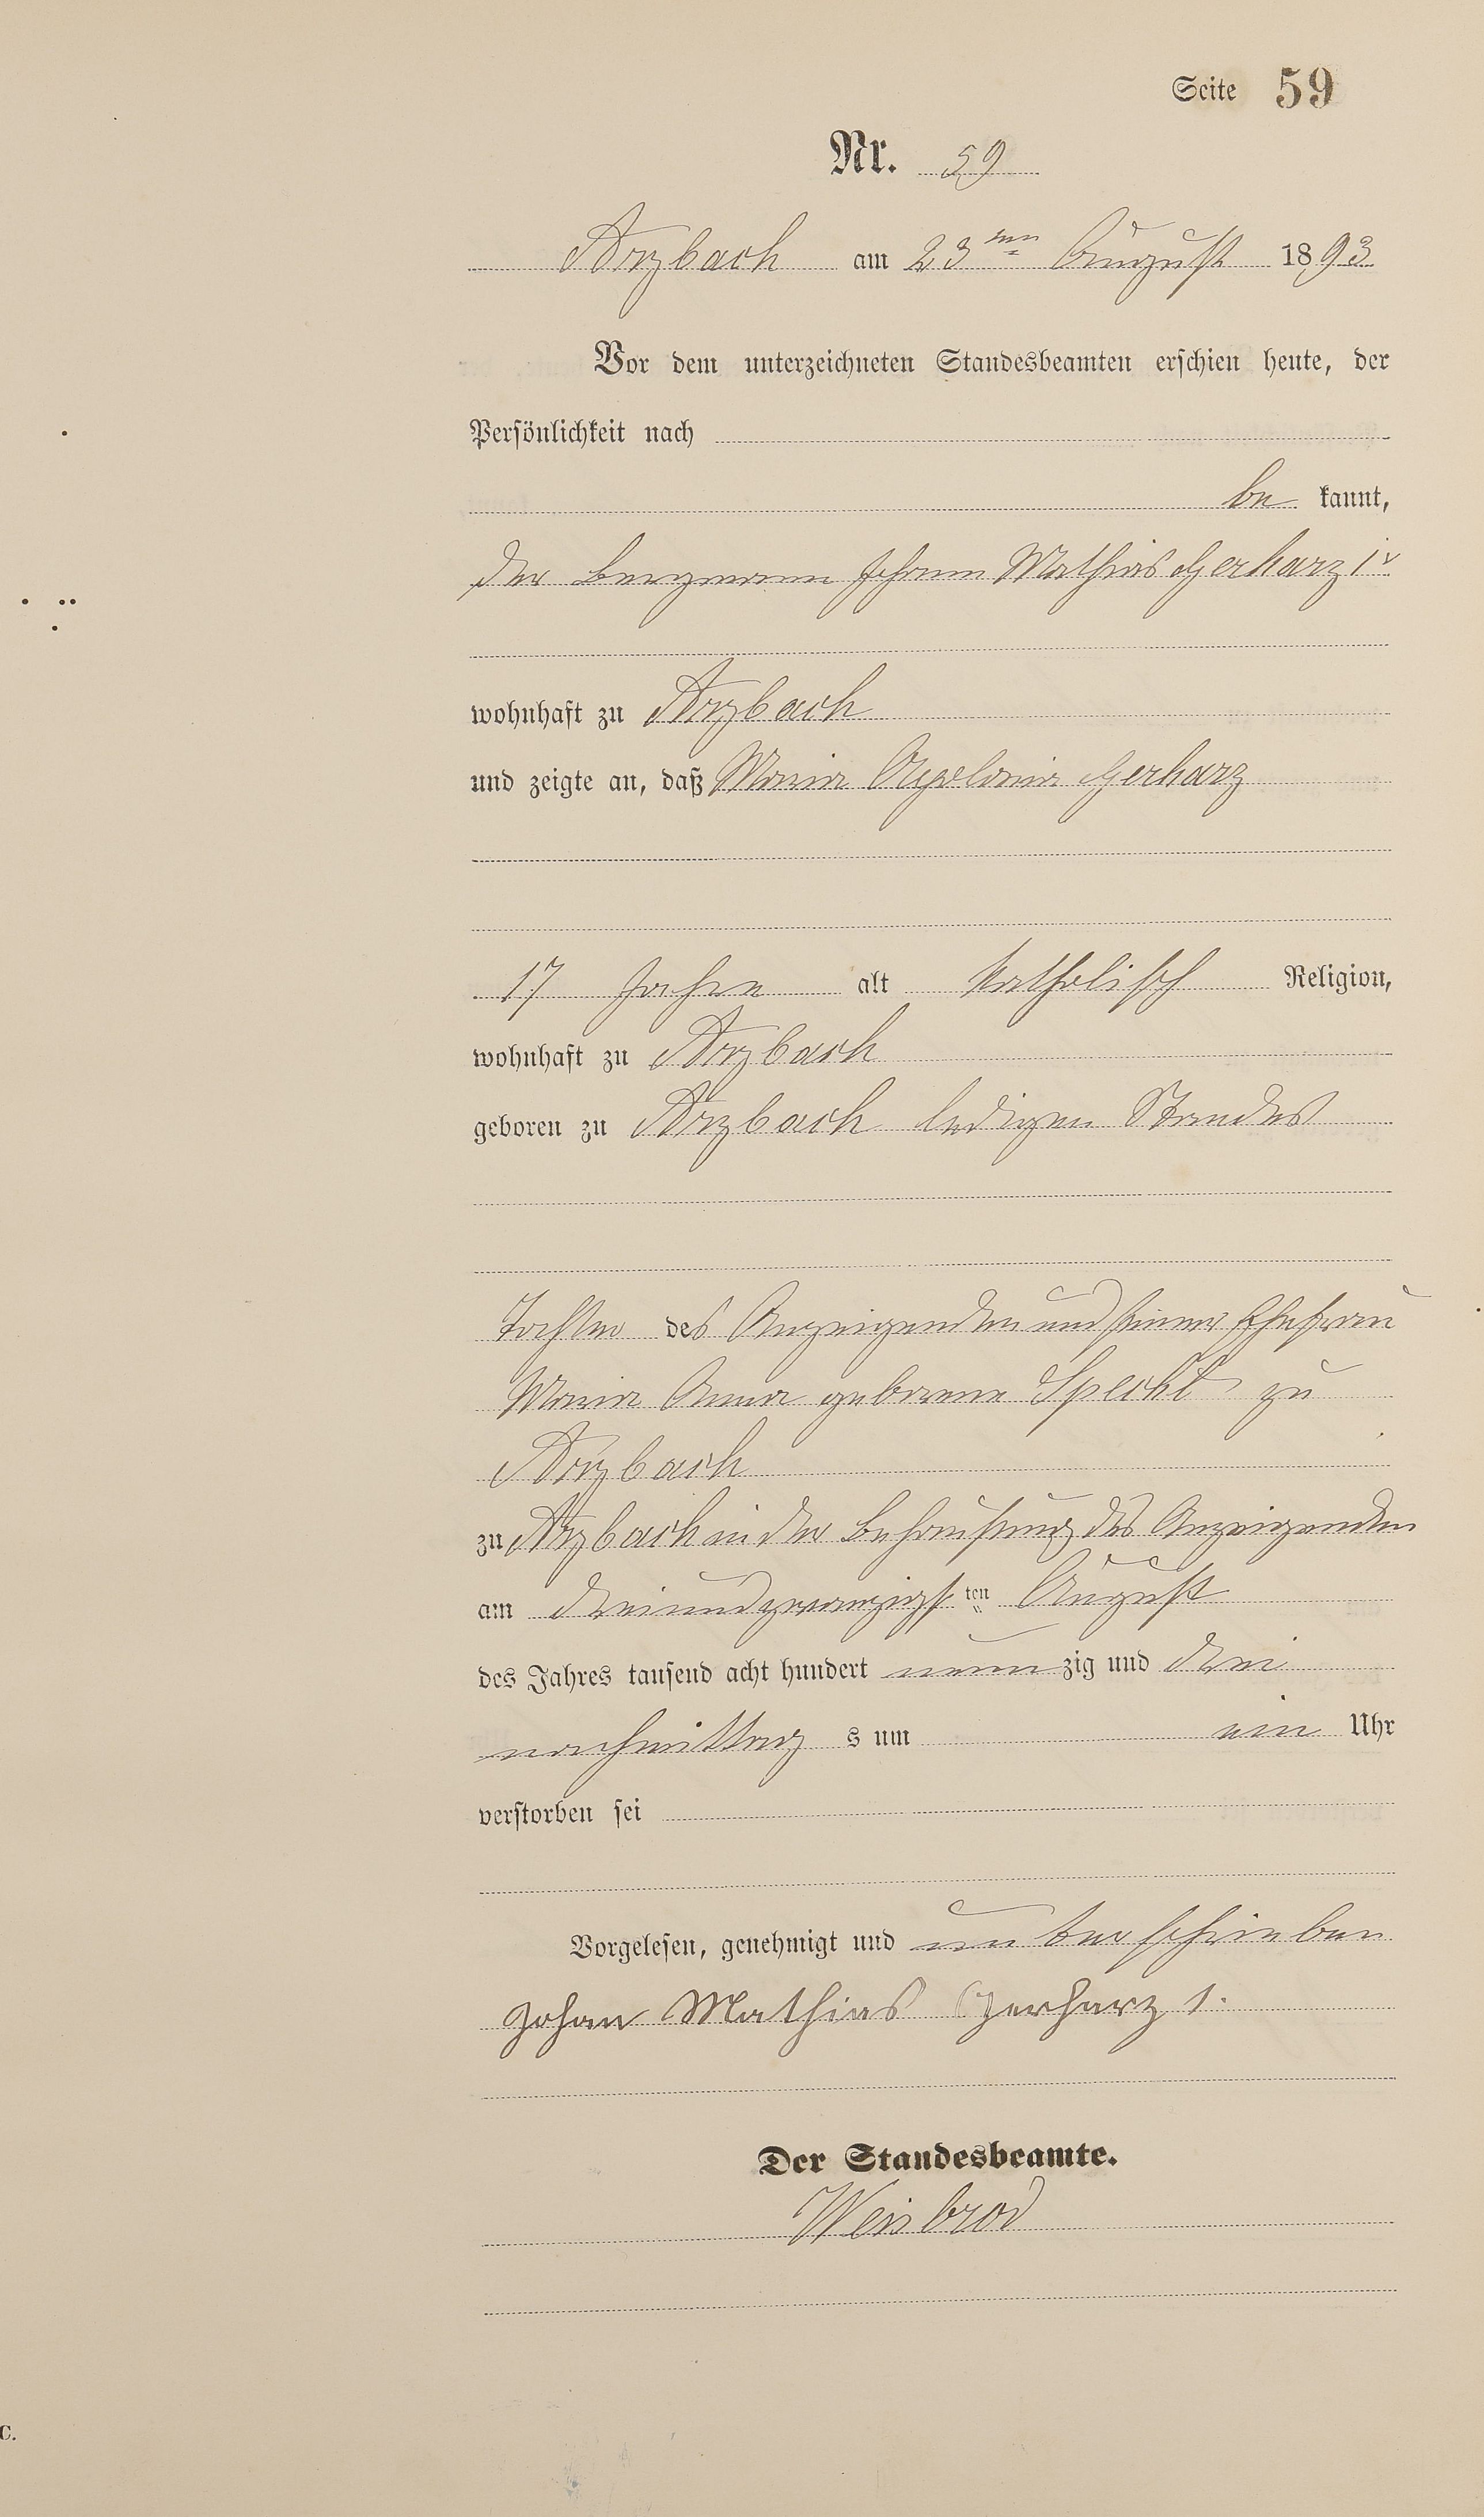 Seite 59
Nr. 59
Arzbach am 23ten August 1893
Vor dem unterzeichneten Standesbeamten erschien heute, der
Persönlichkeit nach
be kannt,
der Bergmann Johann Mathias Gerharz 1r
wohnhaft zu Arzbach
und zeigte an, daß Maria Apolonia Gerharz
17 Jahre alt katholisch Religion,
wohnhaft zu Arzbach
geboren zu Arzbach ledigen Standes
Tochter des Anzeigenden und seiner Ehefrau
Maria Anna geborene Specht zu
Arzbach
zu Arzbach in der Behausung des Anzeigenden
am dreiundzwanzigsten August
des Jahres tausend acht hundert neunzig und drei
nachmittag s um ein Uhr
verstorben sei
Vorgelesen, genehmigt und unterschrieben
Johan Mathias Gerharz 1.
Der Standesbeamte.
Weisbrod
C.